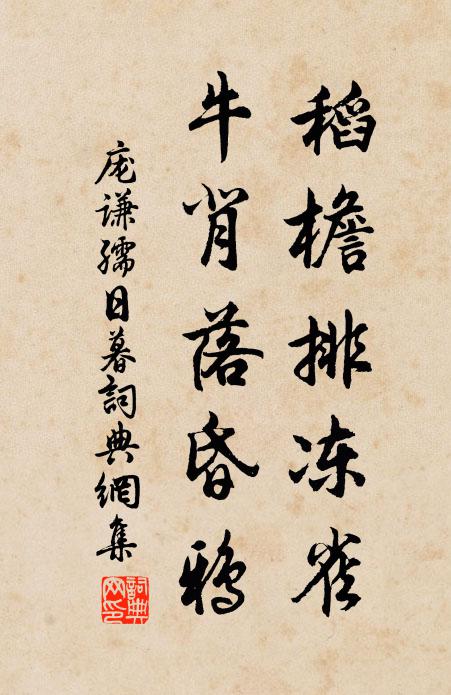 稻檐排冻雀
牛背落昏鸦
庞谦孺日暮詞典網集
詞典网印